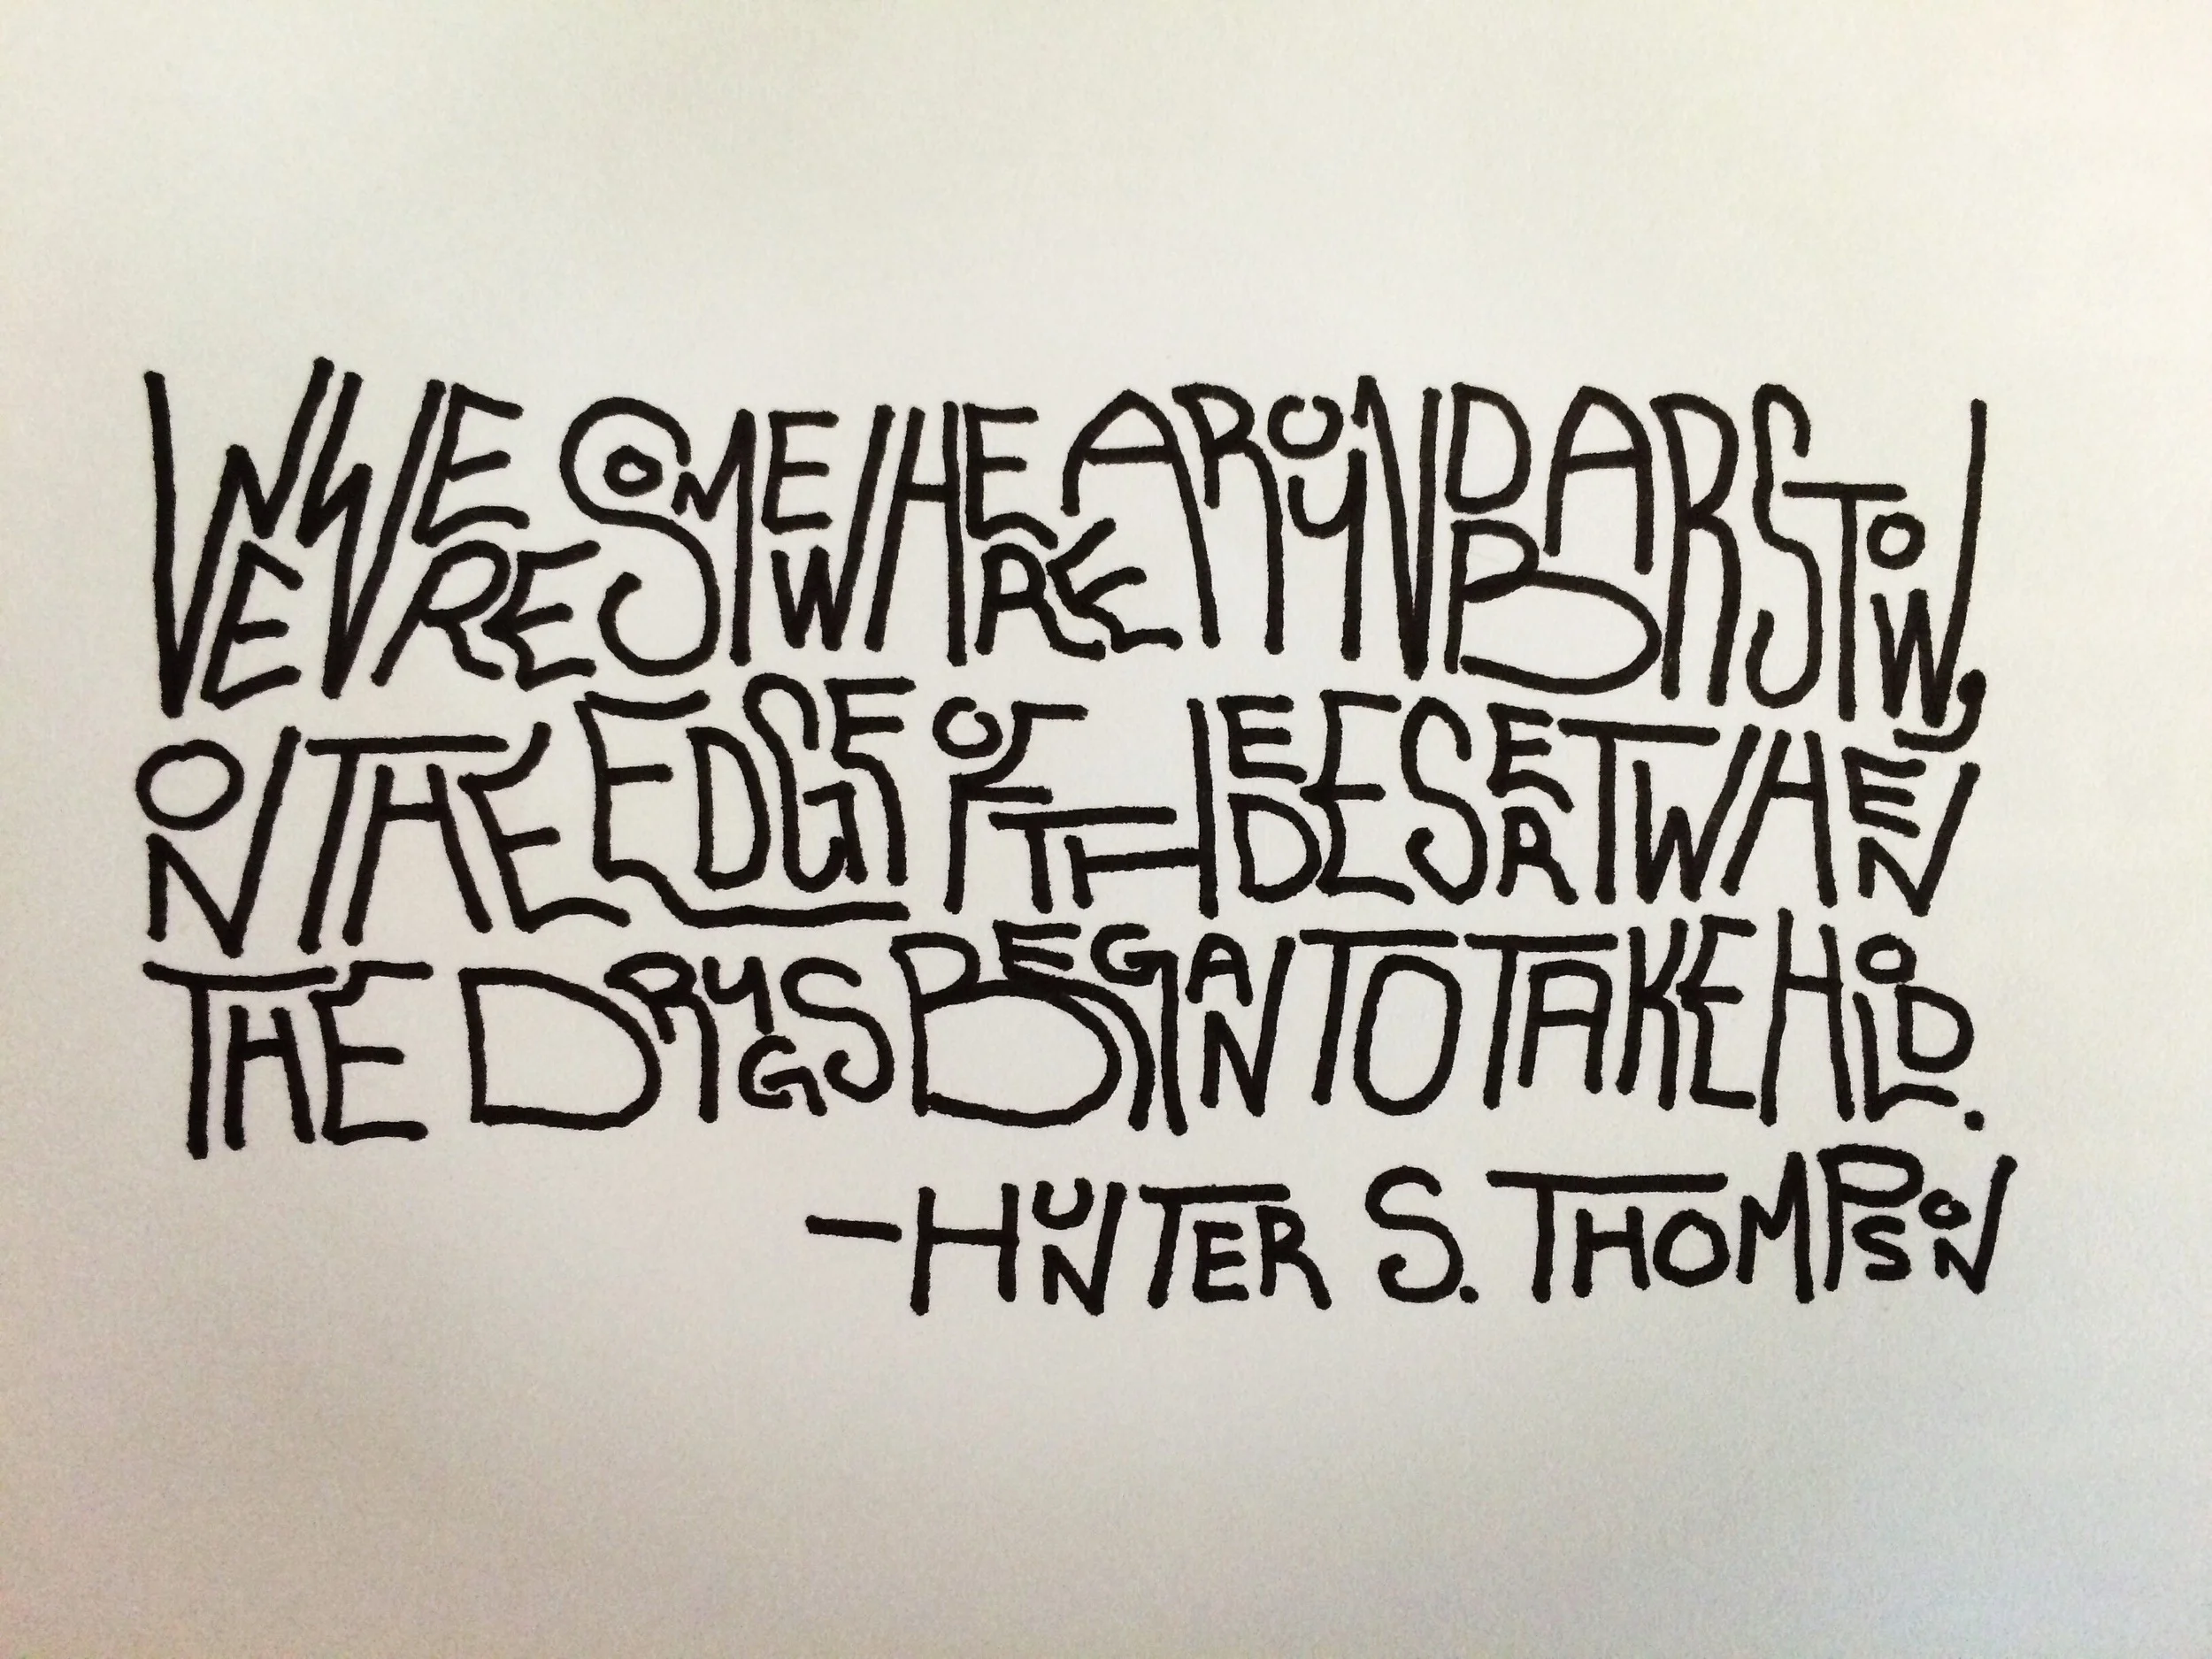 WE WERE SOMEWHERE AROUND BARSTOW,
ON THE EDGE OF THE DESERT WHEN
THE DRUGS BEGAN TO TAKE HOLD.
—HUNTER S. THOMPSON